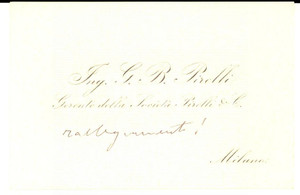 Ing. G. B. Pirelli
Gerente della Società Pirelli & C.
rallegramenti!
Milano